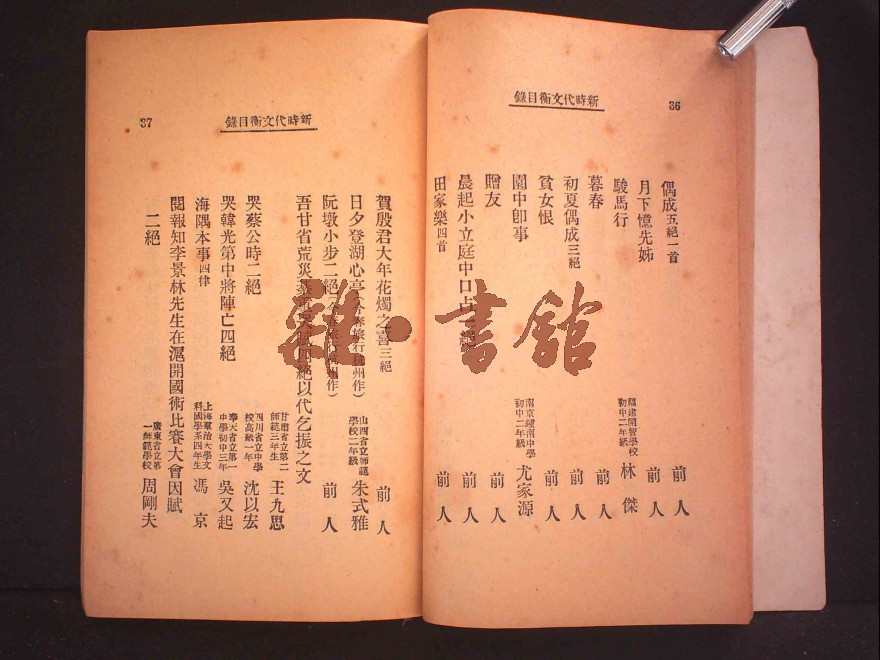 36
新時代文衡目錄
偶成五絕一首 前人
月下憶先姊 前人
駿馬行 福建開智學校初中二年級 林傑
暮春 前人
初夏偶成三絕 前人
貧女恨 前人
園中卽事 南京鍾南中學初中二年級 尤家源
贈友 前人
晨起小立庭中口占一絕 前人
田家樂四首 前人
37
新時代文衡目錄
賀殷君大年花燭之喜三絕 前人
日夕登湖心亭(今春旅行杭州作) 山西省立師範學校二年級 朱式雅
阮墩小步二絕(今春旅行杭州作) 前人
吾甘省荒災 四絕以代乞振之文 甘肅省立第二師範三年生 王九思
哭蔡公時二絕 四川省立中學校高級一年 沈以宏
哭韓光第中將陣亡四絕 奉天省立第一中學初中三年 吳又起
海隅本事四律 上海羣治大學文科國學系四年生 馮京
閱報知李景林先生在滬開國術比賽大會因賦
二絕 廣東省立第一師範學校 周剛夫
雜·書館